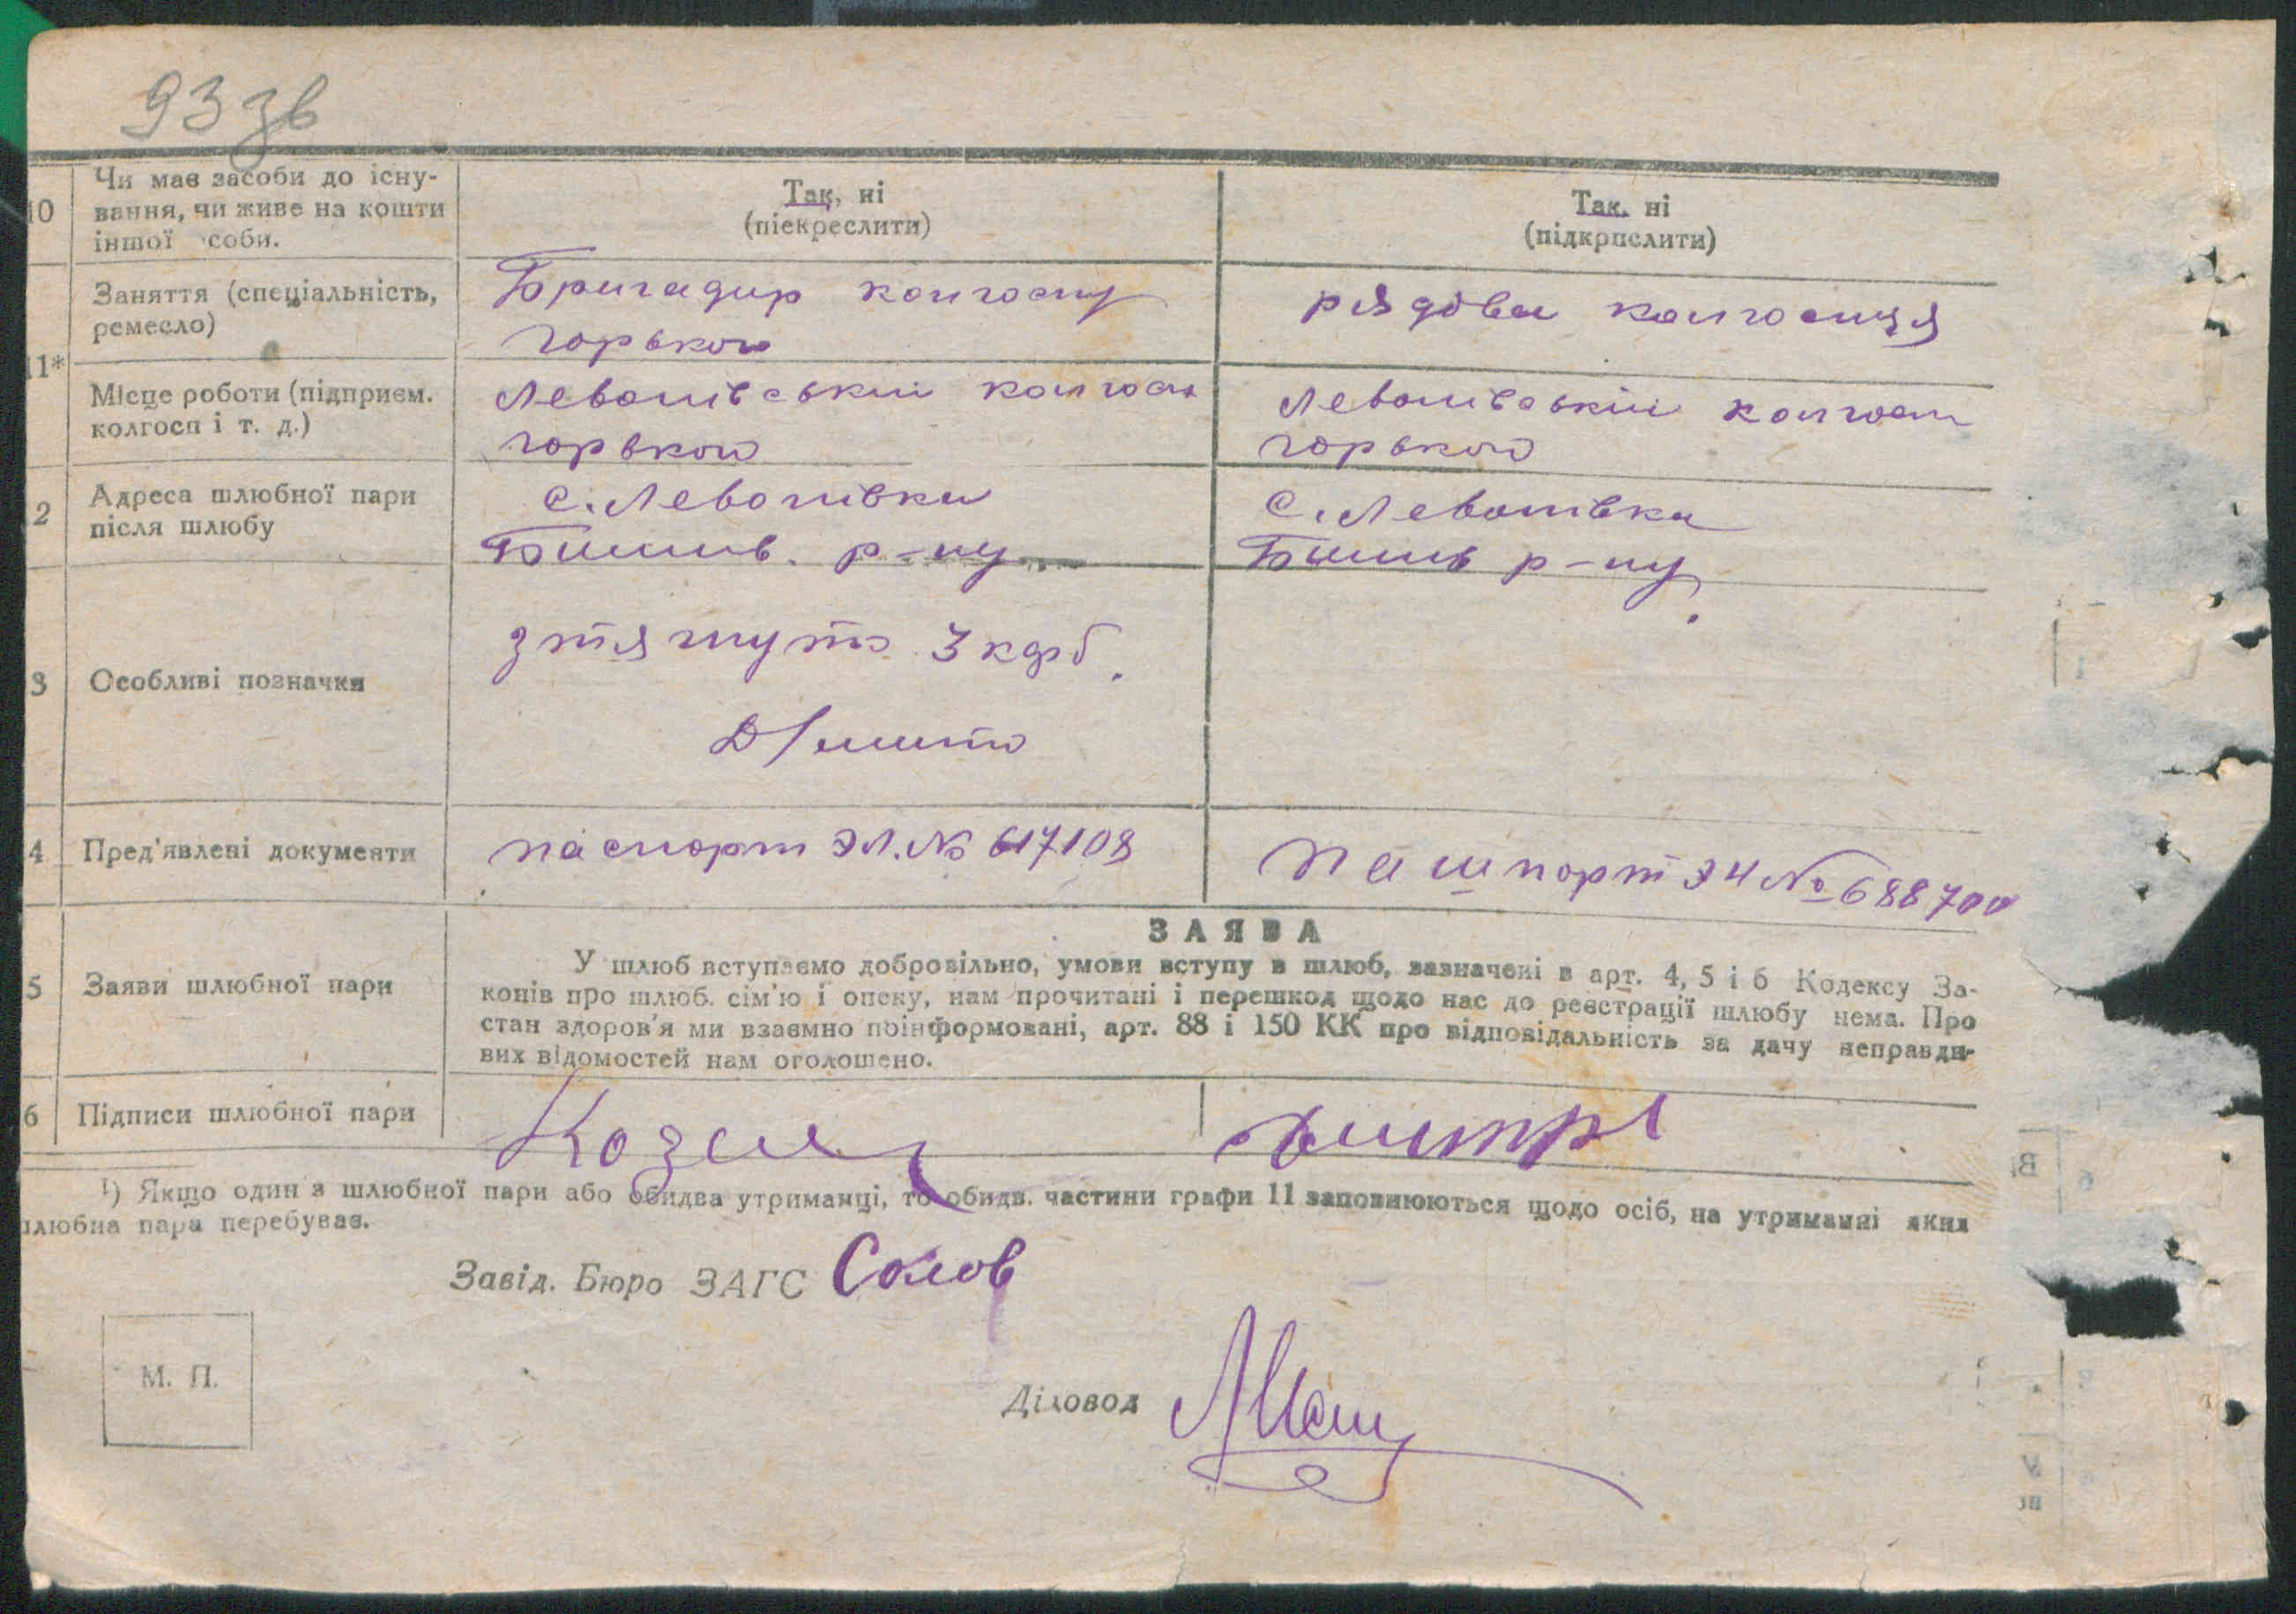 93 зв
10 Чи має засоби до існу-
вання, чи живе на кошти
іншої особи.
Так, ні
(піекреслити)
Так. ні
(підкрпслити)
11*
Заняття (спеціальність,
ремесло)
Бригадир колгоспу
Горького
рядова колгоспця
Місце роботи (підприєм.
колгосп і т. д.)
колгосп
Горького
колгосп
Горького
2 Адреса шлюбної пари
після шлюбу
с.
р-ну
с.
р-ну
3 Особливі позначки
3 крб.
4 Пред'явлені документи
паспорт ЭЛ. № 617108
пашпорт ЭЧ № 688700
ЗАЯВА
5 Заяви шлюбної пари
У шлюб вступаємо добровільно, умови вступу в шлюб, зазначені в арт. 4, 5 і 6 Кодексу За-
конів про шлюб. сім'ю і опеку, нам прочитані і перешкод щодо нас до реєстрації шлюбу нема. Про
стан здоров'я ми взаємно поінформовані, арт. 88 і 150 КК про відповідальність за дачу неправди-
вих відомостей нам оголошено.
6 Підписи шлюбної пари
¹) Якщо один з шлюбної пари або обидва утриманці, то обидв. частини графи 11 заповнюються щодо осіб, на утриманні яких
шлюбна пара перебуває.
Завід. Бюро ЗАГС
М. П.
Діловод